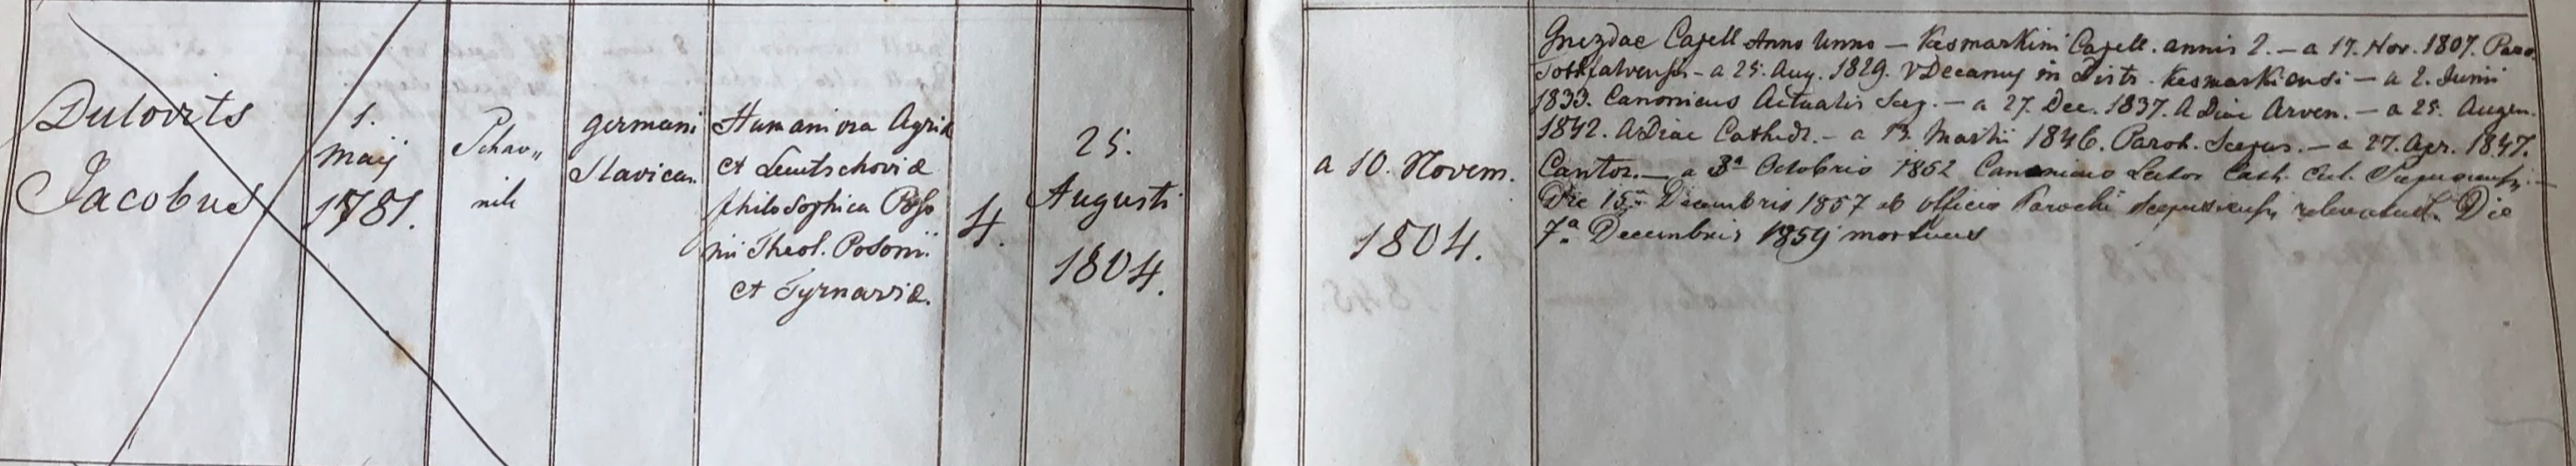 Dulovits
Jacobus
1.
Maij
1781.
Schav„
nik
germani
Slavicam.
Humaniora Agriæ
et Leutschoviæ
philosophica Poso
nii Theol. Posonii
et Tyrnaviæ.
4.
25.
Augusti
1804.
a 10. Novem.
1804.
Gnezdae Capell Anno Unno — Kesmarkini Capell. annis 2. — a 17. Nov. 1807. Paro.
Totfalvensis — a 25. Aug. 1829. VDecanus in Distr. Kesmarkiensi — a 2. Junii
1833. Canonicus Actualis Scep. — a 27. Dec. 1837. ADiac Arven. — a 25. Augen.
1842. ADiac Cathedr. — a 13. Martii 1846. Paroh. Scepus. — a 27. Apr. 1847.
Cantor. — a 3ª Octobris 1852 Canonicus Lector Cath. Eccl. Scepusiensis. —
Die 15ª Decembris 1857 ab officio Parochi Scepusiensis relevatus. Die
7ª Decembris 1859 mortuus